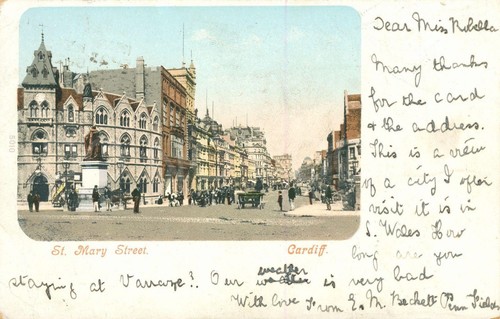 Dear Miss
Many thanks
for the card
& the address.
This is a view
of a city I often
visit it is in
S. Wales How
long are you
St. Mary Street. Cardiff.
staying at ? Our weather is very bad
With love from E. M. Beckett Penn Fields